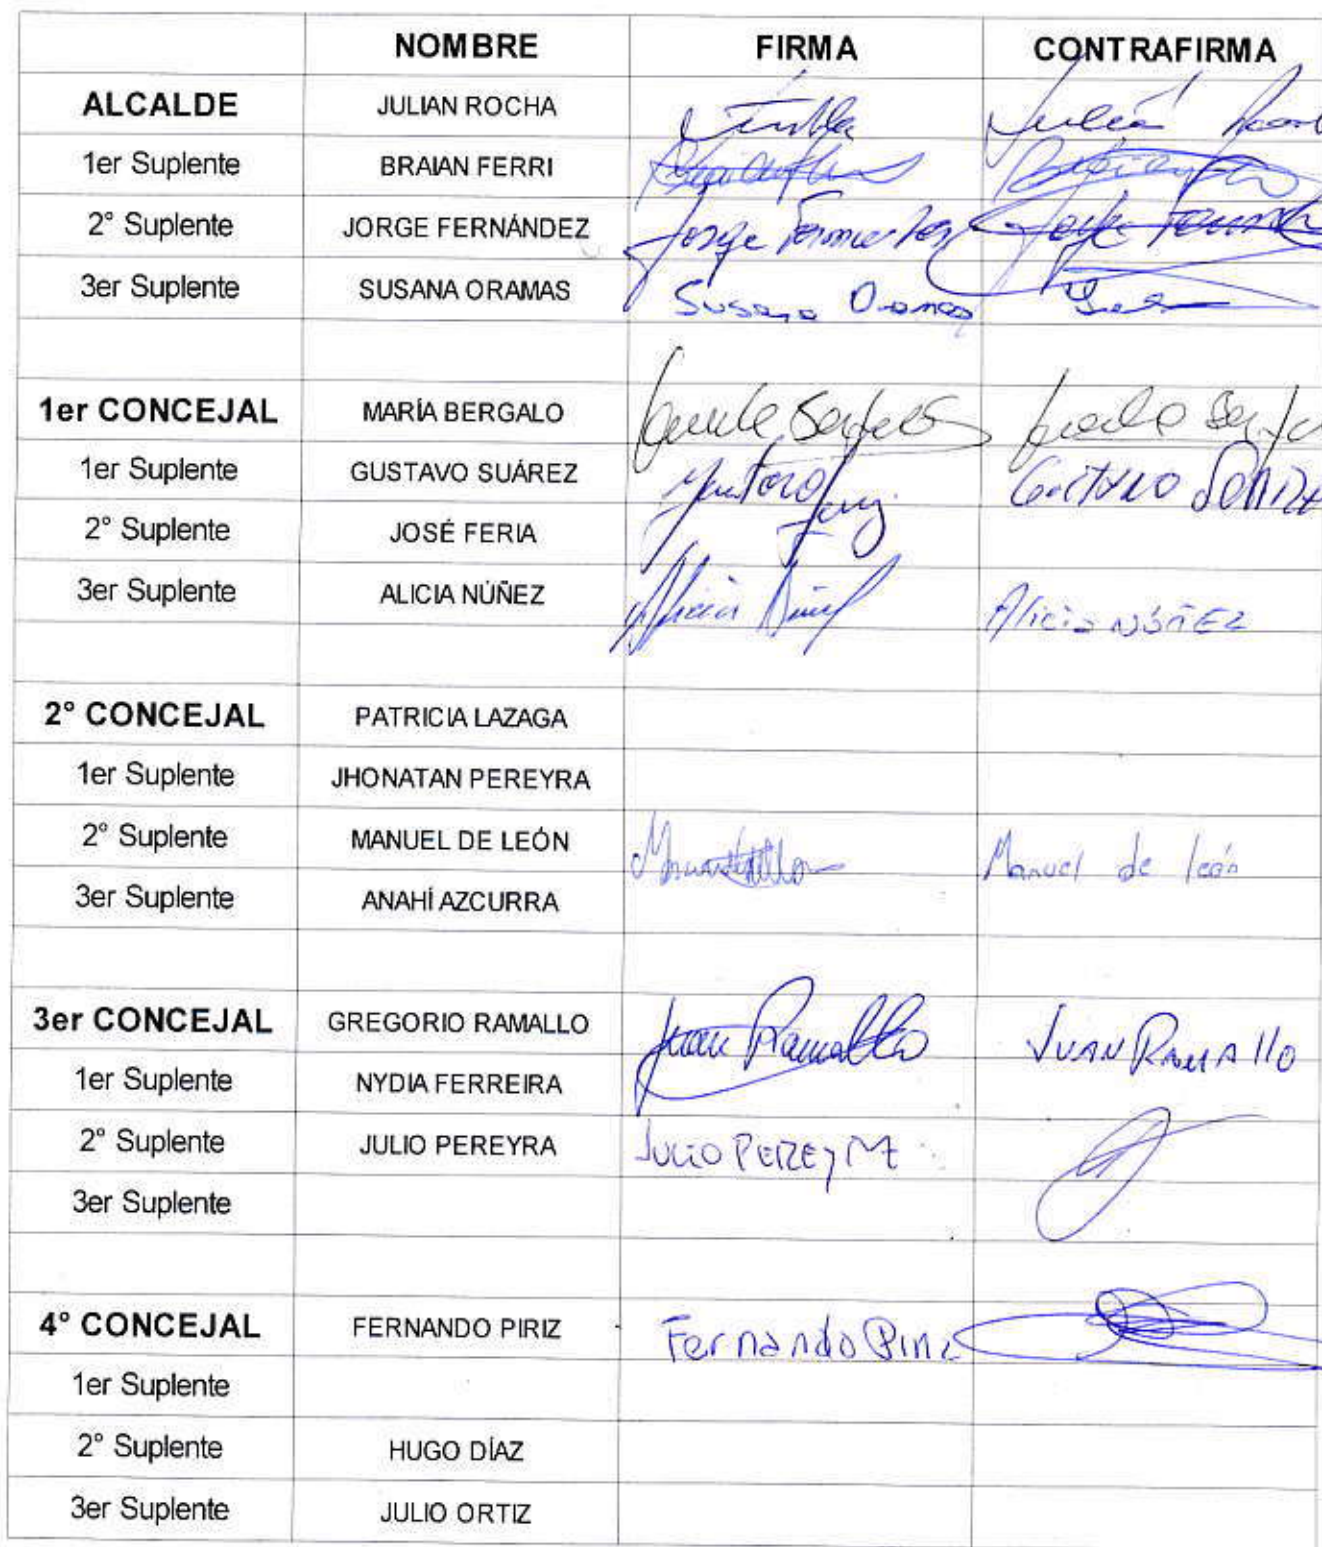 NOMBRE FIRMA CONTRAFIRMA
ALCALDE JULIAN ROCHA
1er Suplente BRAIAN FERRI
2° Suplente JORGE FERNÁNDEZ Jorge
3er Suplente SUSANA ORAMAS Susana Oramas
1er CONCEJAL MARÍA BERGALO
1er Suplente GUSTAVO SUÁREZ
2° Suplente JOSÉ FERIA
3er Suplente ALICIA NÚÑEZ Alicia Núñez Alicia NÚÑEZ
2° CONCEJAL PATRICIA LAZAGA
1er Suplente JHONATAN PEREYRA
2° Suplente MANUEL DE LEÓN Manuel de león
3er Suplente ANAHÍ AZCURRA
3er CONCEJAL GREGORIO RAMALLO Juan Ramallo JUAN RAMALLO
1er Suplente NYDIA FERREIRA
2° Suplente JULIO PEREYRA JULIO PEREYRA
3er Suplente
4° CONCEJAL FERNANDO PIRIZ Fernando Piriz
1er Suplente
2° Suplente HUGO DÍAZ
3er Suplente JULIO ORTIZ